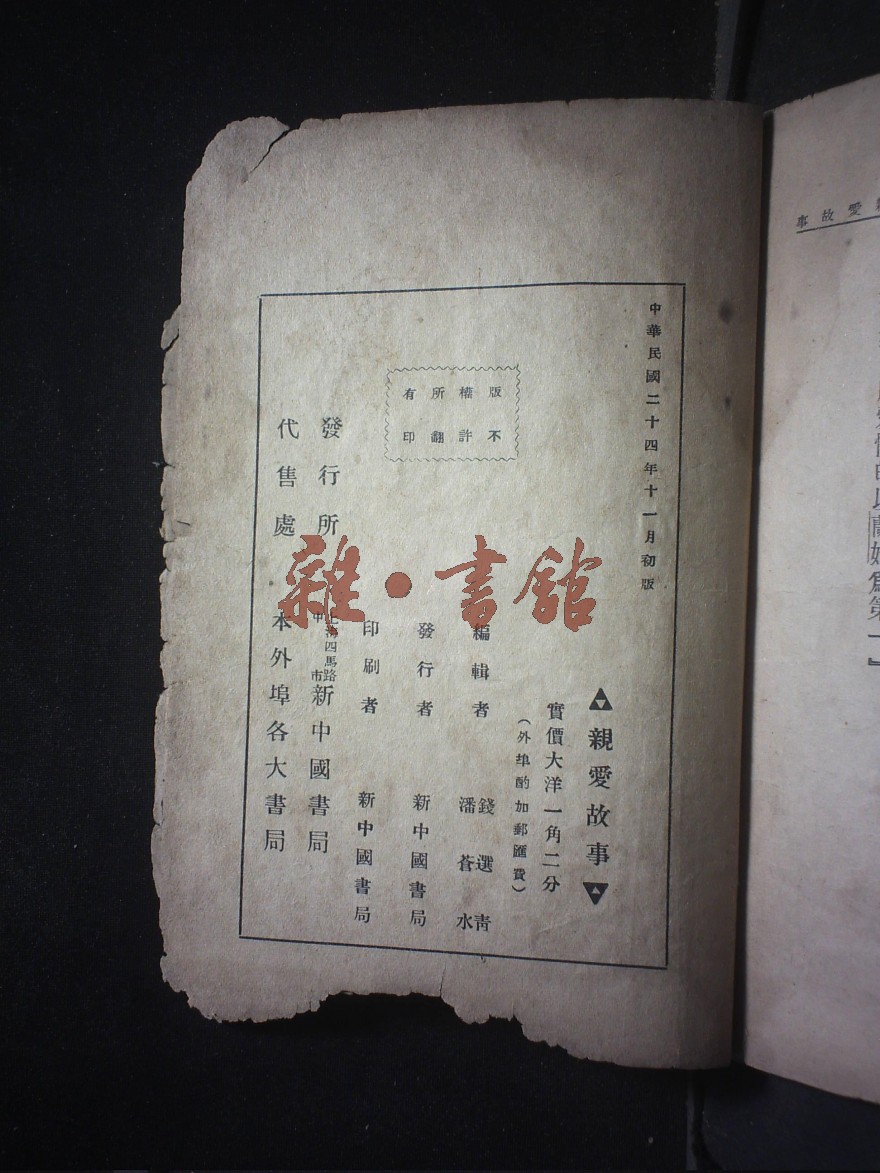 中華民國二十四年十一月初版
親愛故事
實價大洋一角二分
（外埠酌加郵匯費）
編輯者 錢選青 潘蒼水
發行者 新中國書局
印刷者 新中國書局
發行所 上海四馬路中市 新中國書局
代售處 本外埠各大書局
版權所有
不許翻印
雜·書館
愛故事
為第一』